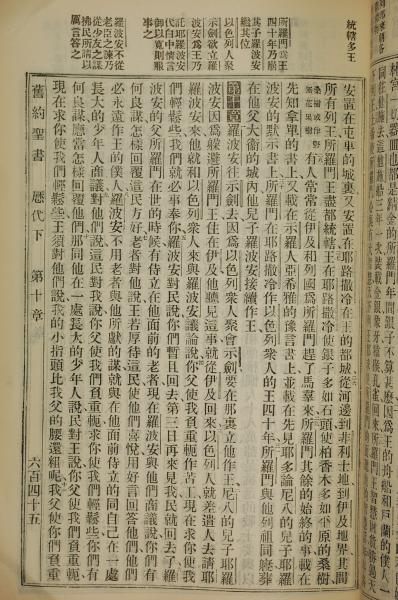 統轄多王
所羅門爲王
四十年乃崩
其子羅波安
繼其位
以色列人聚
示劍欲立羅
波安爲王乃
託耶羅波安
代白申情言
御以寬則服
事之
羅波安不從
老臣之諫乃
從少友之謀
拂民所請以
厲言答之
安置在屯車的城裏又安置在耶路撒冷在王的都城從河邊到非利士地到伊及地界其間
所有列王所羅門王盡都統轄王在耶路撒冷使銀子多如石頭使柏香木多如平原的桑樹
有人常常從伊及和列國爲所羅門趕了馬羣來所羅門其餘的始終的事載在
先知拿單的書上又載在示羅人亞希雅的豫言書上並載在先見耶多論尼八的兒子耶羅
波安的默示書上所羅門在耶路撒冷作以色列衆人的王四十年所羅門與他列祖同寢葬
在他父大衛的城內他兒子羅波安接續作王
第十章羅波安往示劍去因爲以色列人聚會示劍要在那裏立他作王尼八的兒子耶羅
波安因爲躱避所羅門王住在伊及他聽見這事就從伊及回來以色列人就差遣人去請耶
羅波安來他就和以色列衆人來與羅波安議論說你父使我負重軛作苦工現在求你使我
們輕鬆些我們就必事奉你羅波安對民說你們暫且回去第三日再來見我民就回去了羅
波安的父所羅門在世的時候有侍立在他面前的老者現在羅波安與他們商議說你們有
何良謀應當怎樣回覆這民方好老者對他說王若厚待這民使他們喜悅用好言回答他們他們
必永遠作王的僕人羅波安不用老者與他所獻的謀就與在他面前侍立的同自己在一處
長大的少年人商議對他們說這民對我說你父使我們負重軛求你使我們輕鬆些你們有
何良謀應當怎樣回覆他們那同他在一處長大的少年人說民對王說你父使我們負重軛
現在求你使我們輕鬆些王須對他們說我的小指頭比我父的腰還粗呢我父使你們負重
舊約聖書 歷代下 第十章 六百四十五